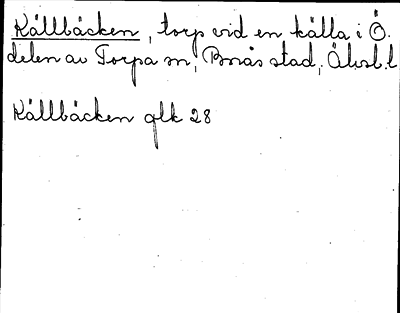 Källbäcken, torp vid en källa i Ö.
delen av Torpa sn, Borås stad, Älvsb.l
Källbäcken glk 28